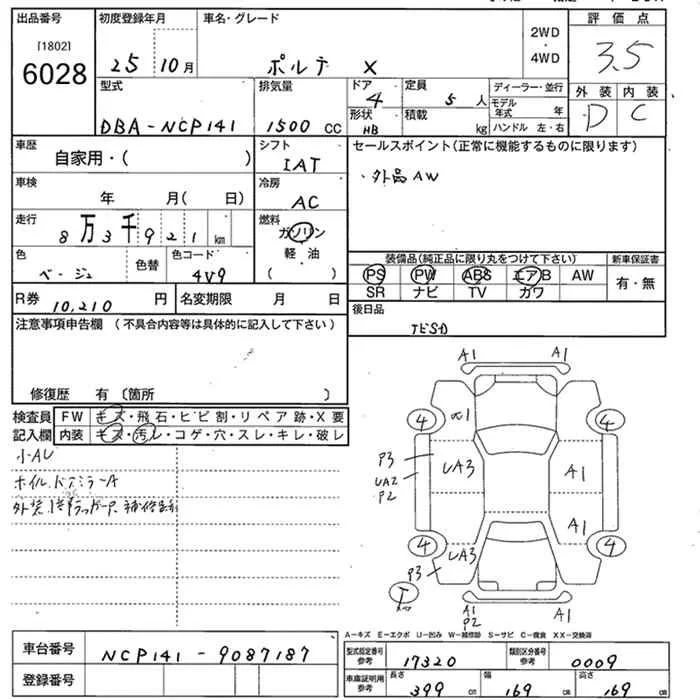 出品番号 初度登録年月 車名・グレード 2WD・4WD 評価点
[1802]
6028 25 10月 ポルテ X 3.5
外装 内装
D C
型式 排気量 ドア 4 定員 5人 ディーラー・並行
モデル年式 年
DBA-NCP141 1500 CC 形状 HB 積載 kg ハンドル 左・右
車歴 自家用・( ) シフト IAT セールスポイント(正常に機能するものに限ります)
・外品AW
車検 年 月( 日) 冷房 AC
走行 8万3千921km 燃料 ガソリン
軽油
( )
色 ベージュ 色替 色コード 4V9
装備品(純正品に限り丸をつけて下さい) 新車保証書
PS PW ABS エアB AW 有・無
SR ナビ TV ガワ
R券 10,210円 名変期限 月 日
後日品
注意事項申告欄 (不具合内容等は具体的に記入して下さい)
修復歴 有 〔箇所 〕
検査員 FW キズ・飛石・ヒビ割・リペア跡・X要
記入欄 内装 キズ・汚レ・コゲ・穴・スレ・キレ・破レ
小AU
ホイル、ドアミラーA
A1 A1
4 α1 4
P3 UA3 A1
UA2
P2
A1
4 UA3 4
P3
T
A1 A1
P2
A-キズ E-エクボ U-凹み W-補修跡 S-サビ C-腐食 XX-交換済
車台番号 NCP141-9087187
型式指定番号 参考 17320 類別区分番号 参考 0009
登録番号
車庫証明用 参考 長さ 399cm 幅 169cm 高さ 169cm